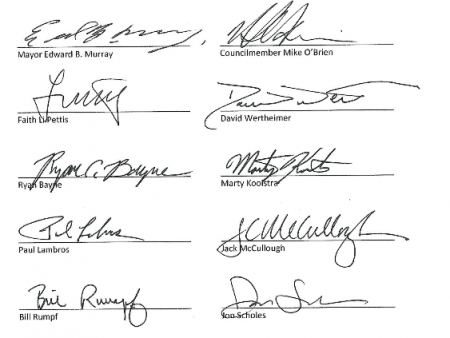 Mayor Edward B. Murray
Councilmember Mike O'Brien
Faith Li Pettis
David Wertheimer
Ryan C. Bayne
Ryan Bayne
Marty Kooistra
Paul Lambros
JC McCullough
Jack McCullough
Bill Rumpf
Bill Rumpf
Jon Scholes